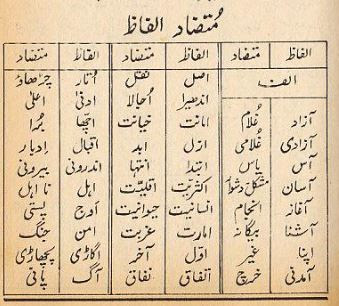 مُتضاد الفاظ
الفاظ متضاد الفاظ متضاد الفاظ متضاد
الف اصل نقل اُتار چڑھاؤ
اندھیرا اُجالا ادنیٰ اعلیٰ
آزاد غُلام امانت خیانت اچھا بُرا
آزادی غُلامی ازل ابد اقبال ادبار
آس یاس ابتدا انتہا اندرونی بیرونی
آسان مشکل دشوار اکثریت اقلیّت اہل نا اہل
آغاز انجام انسانیت حیوانیت اوج پستی
آشنا بیگانہ امارت غربت امن جنگ
اپنا غیر اوّل آخر اگاڑی پچھاڑی
آمدنی خرچ اتفاق نفاق آگ پانی